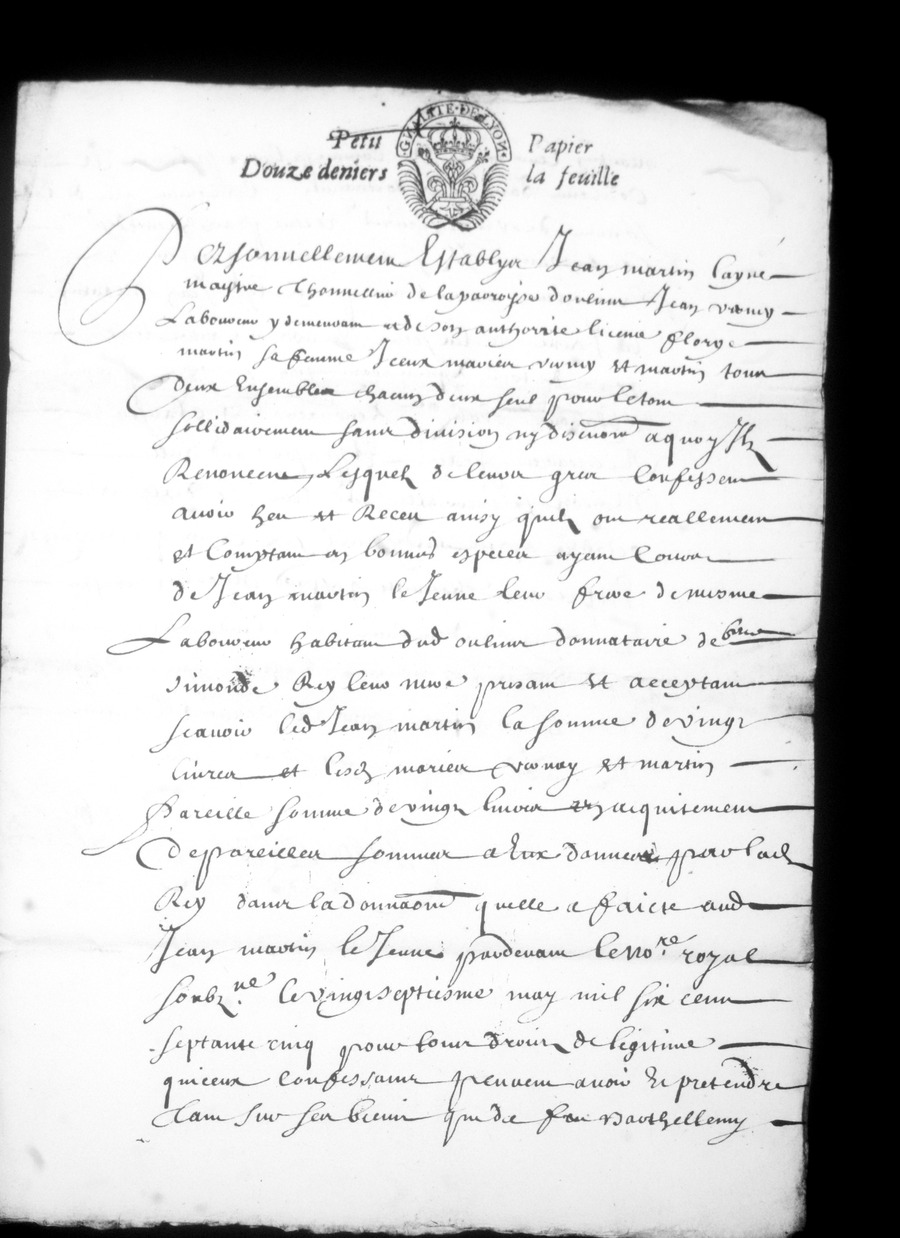 GNALITE·DE·LYON·
Petit Papier
Douze deniers la feuille
Personnellement Establys Jean martin layné
maystre de la parroisse doulins Jean vernay
Laboureur y demeurant et de son authorite licenie florye
martin sa femme Jceux mariés vernay et martin tous
deux Ensemble chacun deux seul pour le tout
sollidairement sans division ny discution a quoy Ilz
Renoncent Lesquelz de leurs gres Confessent
avoir heu et Receu ainsy quilz ont reallement
et Comptant en bonnes especes ayant Cours
de Jean martin le Jeune leur frere de mesme
Laboureur habitant dud oulins donnataire de
simonde Rey leur mere present et acceptant
scavoir led Jean martin la somme de vingt
livres et lesd mariés vernay et martin
Pareille somme de vingt livres en acquitement
de pareilles sommes a Eux données par lad
Rey dans la donnaon quelle a faicte aud
Jean martin le Jeune pardevant le nore. royal
soubzne. le vingtseptiesme may mil six cent
septante cinq pour tous droitz de legitime
quiceux Confessants peuvent avoir Et pretendre
tant sur ses biens que de feu Barthellemy